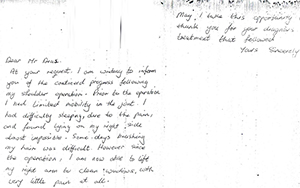 Dear Mr
At your request, I am writing to inform
you of the continued progress following
my shoulder operation. Prior to the operation
I had limited mobility in the joint. I
had difficulty sleeping, due to the pain,
and found lying on my right side
almost impossible. Some days brushing
my hair was difficult. However since
the operation, I am now able to lift
my right arm to clean windows, with
very little pain at all.
May I take this opportunity
thank you for your
treatment that followed
Yours Sincerely